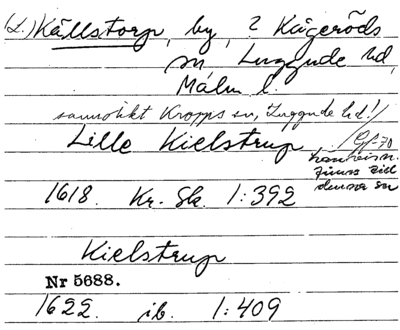 (L.) Källstorp, by, ? Kågeröds
sn Luggude hd,
Malm. l.
sannolikt Kropps sn, Luggude hd!/
Lille Kielstrup /Gf-70
hänvisn.
finns till
denna sn
1618. Kr. Sk. 1:392
Kielstrup
Nr 5688.
1622. ib. 1:409